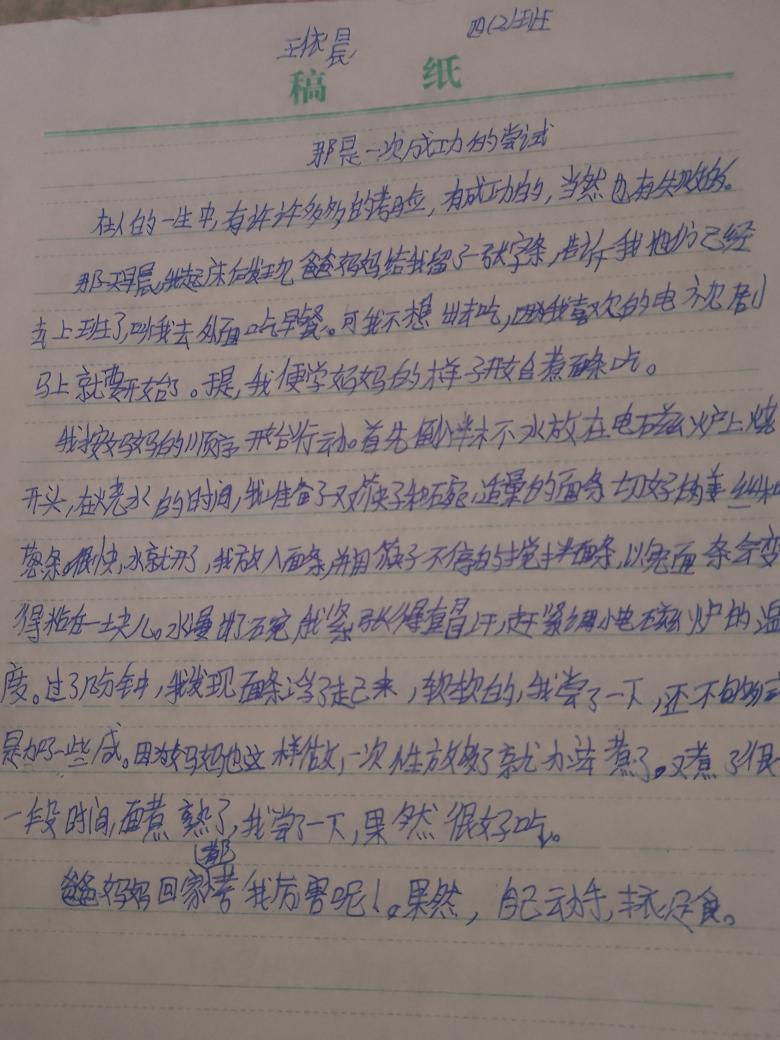 四(2)班
王依晨
稿 纸
那是一次成功的尝试
在人的一生中,有许许多多的考验,有成功的,当然也有失败的。
那天早晨,我起床发现爸爸妈妈给我留了一张字条,告诉我他们已经
去上班了,叫我去外面吃早餐。可我不想出去吃,因为我喜欢的电视剧
马上就要开始了。于是,我便学妈妈的样子开始自煮面条吃。
我按妈妈的顺序开始行动。首先倒半水放在电磁炉上烧
开头,在烧水的时间,我准备了一双筷子和碗,适量的面条切好的姜丝和
葱条。很快,水就开了,我放入面条,并用筷子不停的搅拌面条,以免面条会变
得粘在一块儿。水漫出了碗我紧张得直冒汗,赶紧调小电磁炉的温
度。过了几分钟,我发现面条浮了起来,软软的,我尝了一下,还不
是加了一些盐。因为妈妈也这样做,一次性放够了就办法煮了。又煮了很
一段时间,面煮熟了,我尝了一下,果然很好吃。
爸爸妈妈回家都夸我厉害呢!果然,自己动手,丰衣足食。